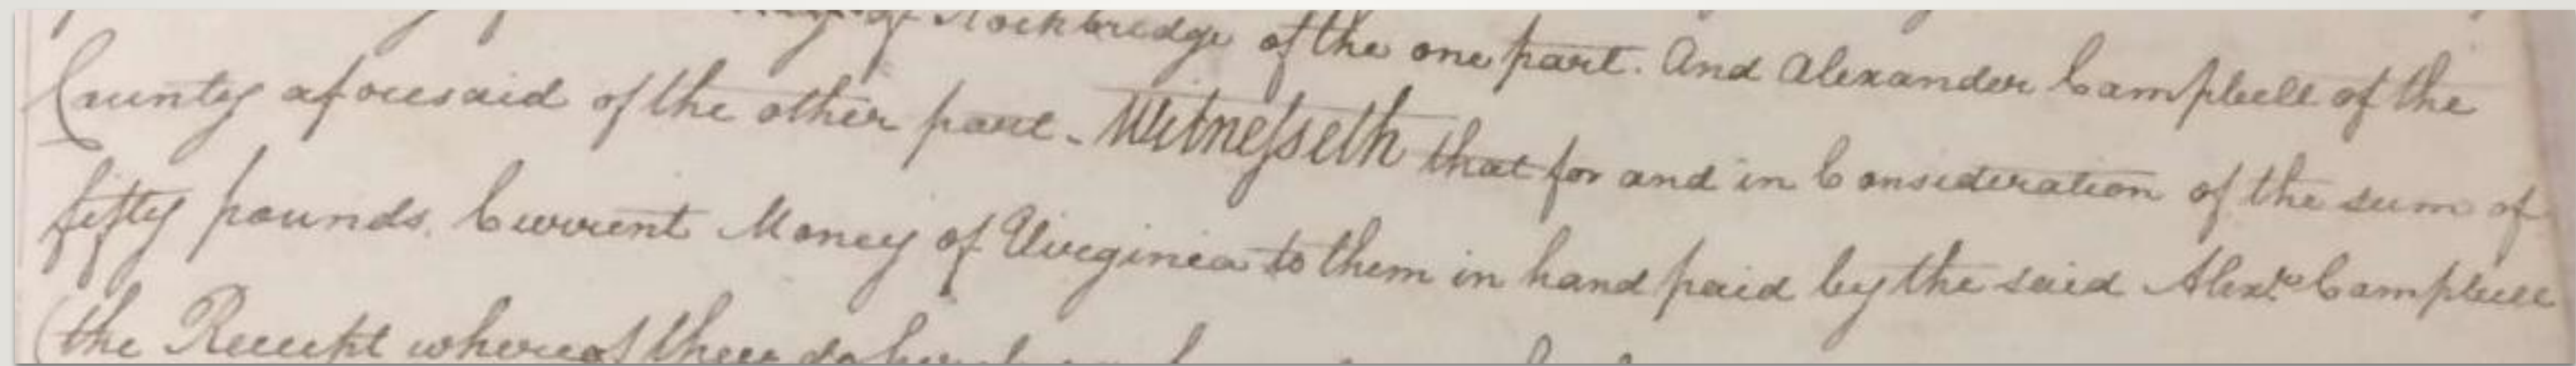 of Rockbridge of the one part. And Alexander Campbell of the
County aforesaid of the other part - Witneſseth that for and in Consideration of the sum of
fifty pounds. Current Money of Virginia to them in hand paid by the said Alexr. Campbell
(the Receipt whereof they do